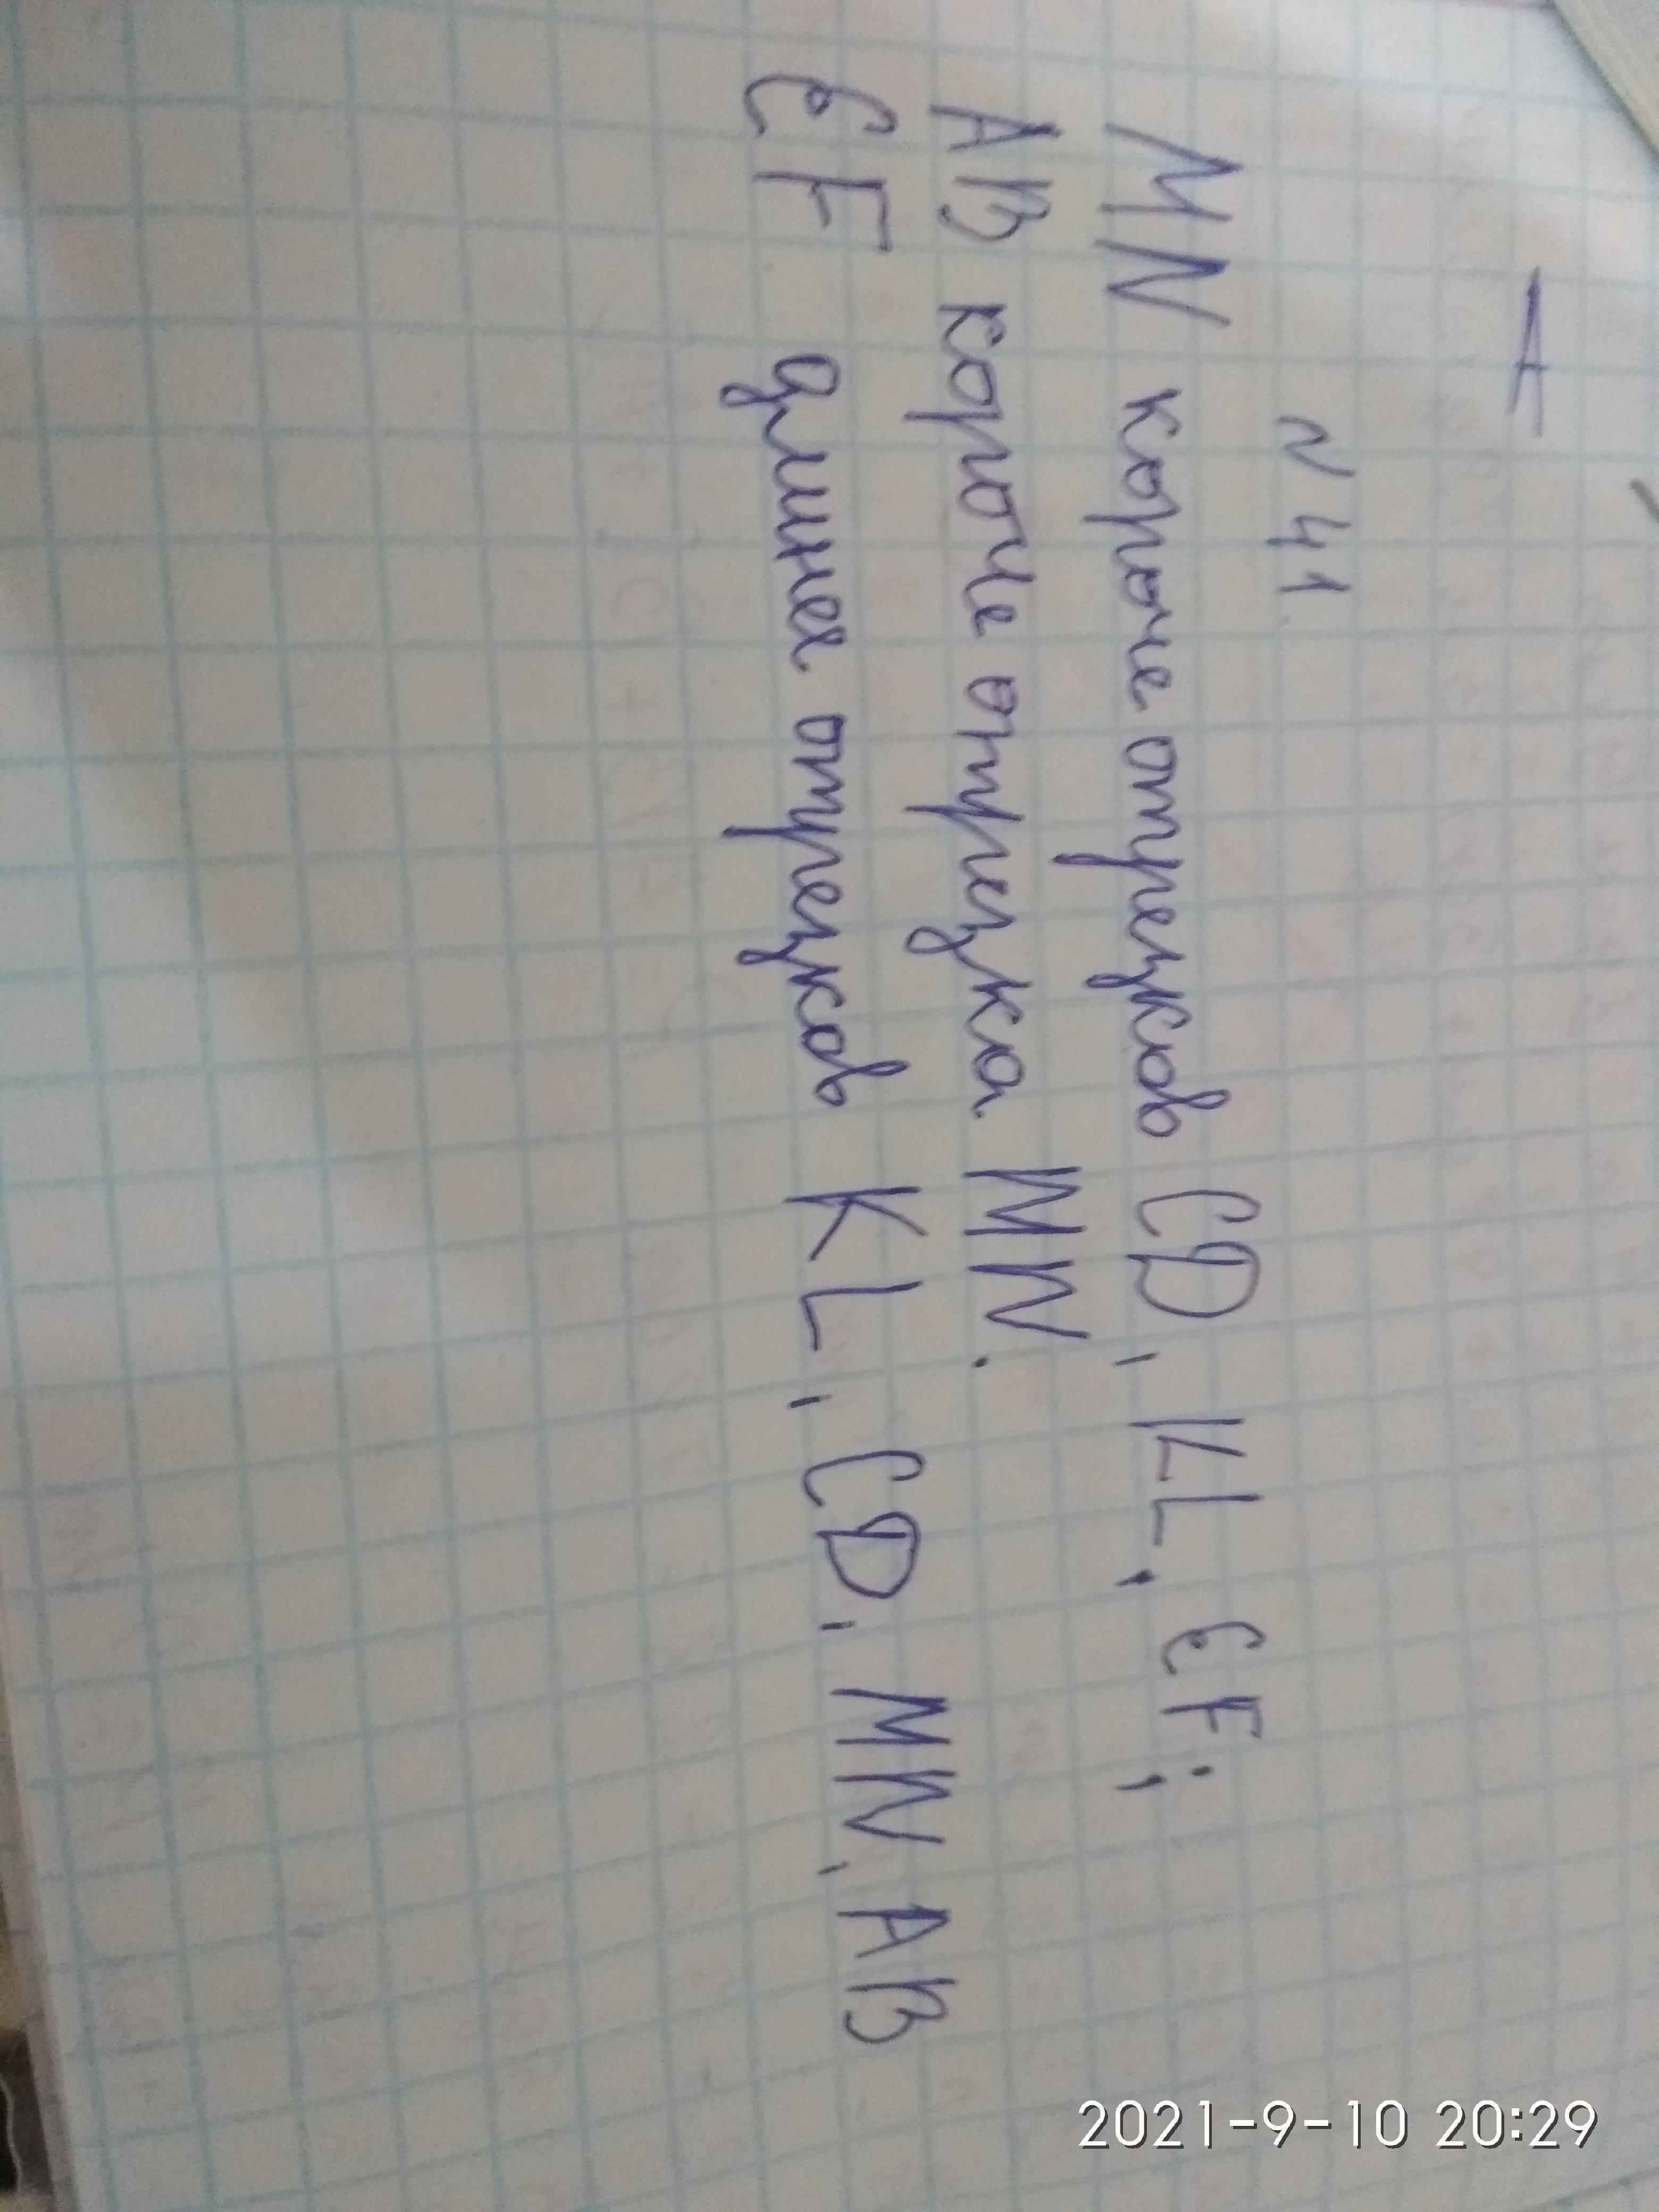 N 41
MN короче отрезков CD, KL, EF;
AB короче отрезка MN.
EF длинее отрезков KL, CD, MN, AB
2021-9-10 20:29